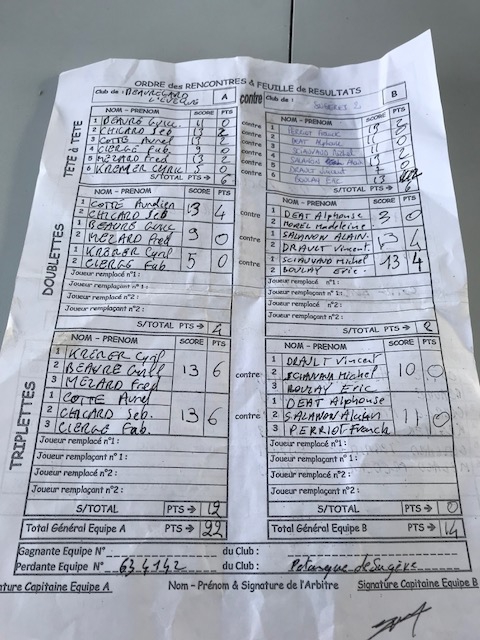 ORDRE des RENCONTRES & FEUILLE de RESULTATS
Club de : BEAUREGARD L'EVEQUE A contre Club de : B
TÊTE A TÊTE
NOM - PRENOM SCORE PTS NOM - PRENOM SCORE PTS
1 contre 1 PERRIOT Franck
2 CHICARD Seb 13 2 contre 2 DEAT Alphonse
3 COTTE Aurel 13 2 contre 3 SCIAUVAND Michel
4 CIERGE Fab. 9 0 contre 4 SALANON Alain
5 MEZARD Fred 13 2 contre 5 DRAULT Vincent
6 KREMER Cyril 0 contre 6 BOULAY Eric
S/TOTAL PTS → 6 S/TOTAL PTS → 6
DOUBLETTES
NOM - PRENOM SCORE PTS NOM - PRENOM SCORE PTS
1 COTTE Aurelien 13 4 contre 1 DEAT Alphonse 3 0
2 CHICARD Seb 2 MOREL Madeleine
1 BEAURE 9 0 contre 1 SALANON ALAIN. 13 4
2 MEZARD Fred 2 DRAULT Vincent.
1 KREMER Cyril 5 0 contre 1 SCIAUVAND Michel 13 4
2 CIERGE Fab. 2 BOULAY Eric.
Joueur remplacé n°1 : Joueur remplacé n°1 :
Joueur remplaçant n°1 : Joueur remplaçant n°1 :
Joueur remplacé n°2 : Joueur remplacé n°2 :
Joueur remplaçant n°2 : Joueur remplaçant n°2 :
S/TOTAL PTS → 4 S/TOTAL PTS → 8
TRIPLETTES
NOM - PRENOM SCORE PTS NOM - PRENOM SCORE PTS
1 KREMER Cyril 1 DRAULT Vincent
2 BEAURE 13 6 contre 2 SCIAUVAND Michel 10 0
3 MEZARD Fred 3 BOULAY Eric
1 COTTE Aurel 1 DEAT Alphonse
2 CHICARD Seb. 13 6 contre 2 SALANON Alain 11 0
3 CIERGE Fab. 3 PERRIOT Franck
Joueur remplacé n°1 : Joueur remplacé n°1 :
Joueur remplaçant n°1 : Joueur remplaçant n°1 :
Joueur remplacé n°2 : Joueur remplacé n°2 :
Joueur remplaçant n°2 : Joueur remplaçant n°2 :
S/TOTAL PTS → 12 S/TOTAL PTS → 0
Total Général Equipe A PTS → 22 Total Général Equipe B PTS → 14
Gagnante Equipe N° du Club :
Perdante Equipe N° 634142 du Club : Petanque de Sugère
ature Capitaine Equipe A Nom - Prénom & Signature de l'Arbitre Signature Capitaine Equipe B